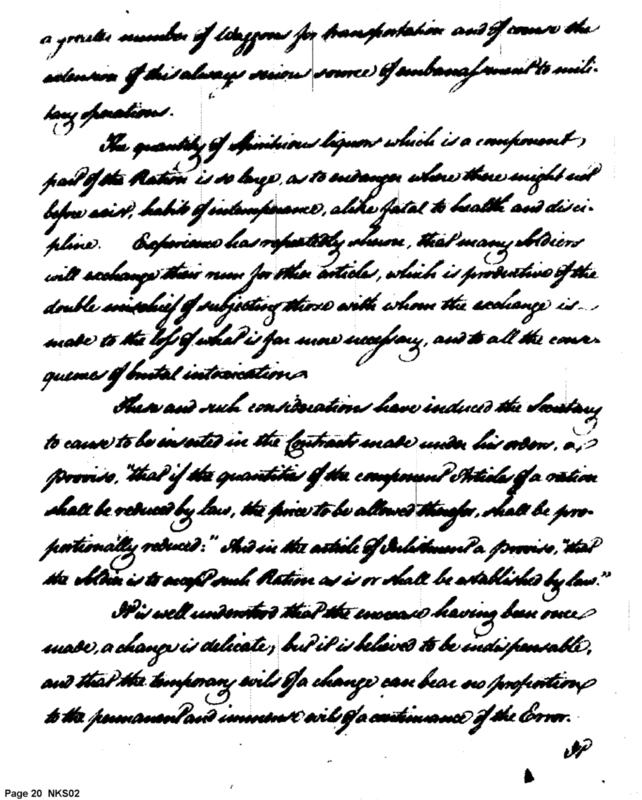 a greater number of Waggons for transportation and of course the
extension of this always serious source of embarrassment to mili-
tary operations.
The quantity of Spiritious liquors which is a component
part of the Ration is so large, as to endanger where there might not
before exist, habit of intemperance, alike fatal to health and disci-
pline. Experience has repeatedly shewn, that many Soldiers
will exchange their rum for other articles, which is productive of the
double mischief of subjecting those with whom the exchange is
made to the loss of what is far more necessary, and to all the conse-
quences of brutal intoxication
These and such considerations have induced the Secretary
to cause to be inserted in the Contracts made under his orders, a
proviso, "that if the quantities of the component Articles of a ration
shall be reduced by law, the price to be allowed therefor, shall be pro-
portionally reduced:" And in the article of Inlistment a proviso, "that
the Soldier is to accept such Ration as is or shall be established by law."
It is well understood that the increase having been once
made, a change is delicate; but it is believed to be indispensable,
and that the temporary evils of a change can bear no proportion
to the permanent and immense evils of a continuance of the Error.
It
Page 20 NKS02